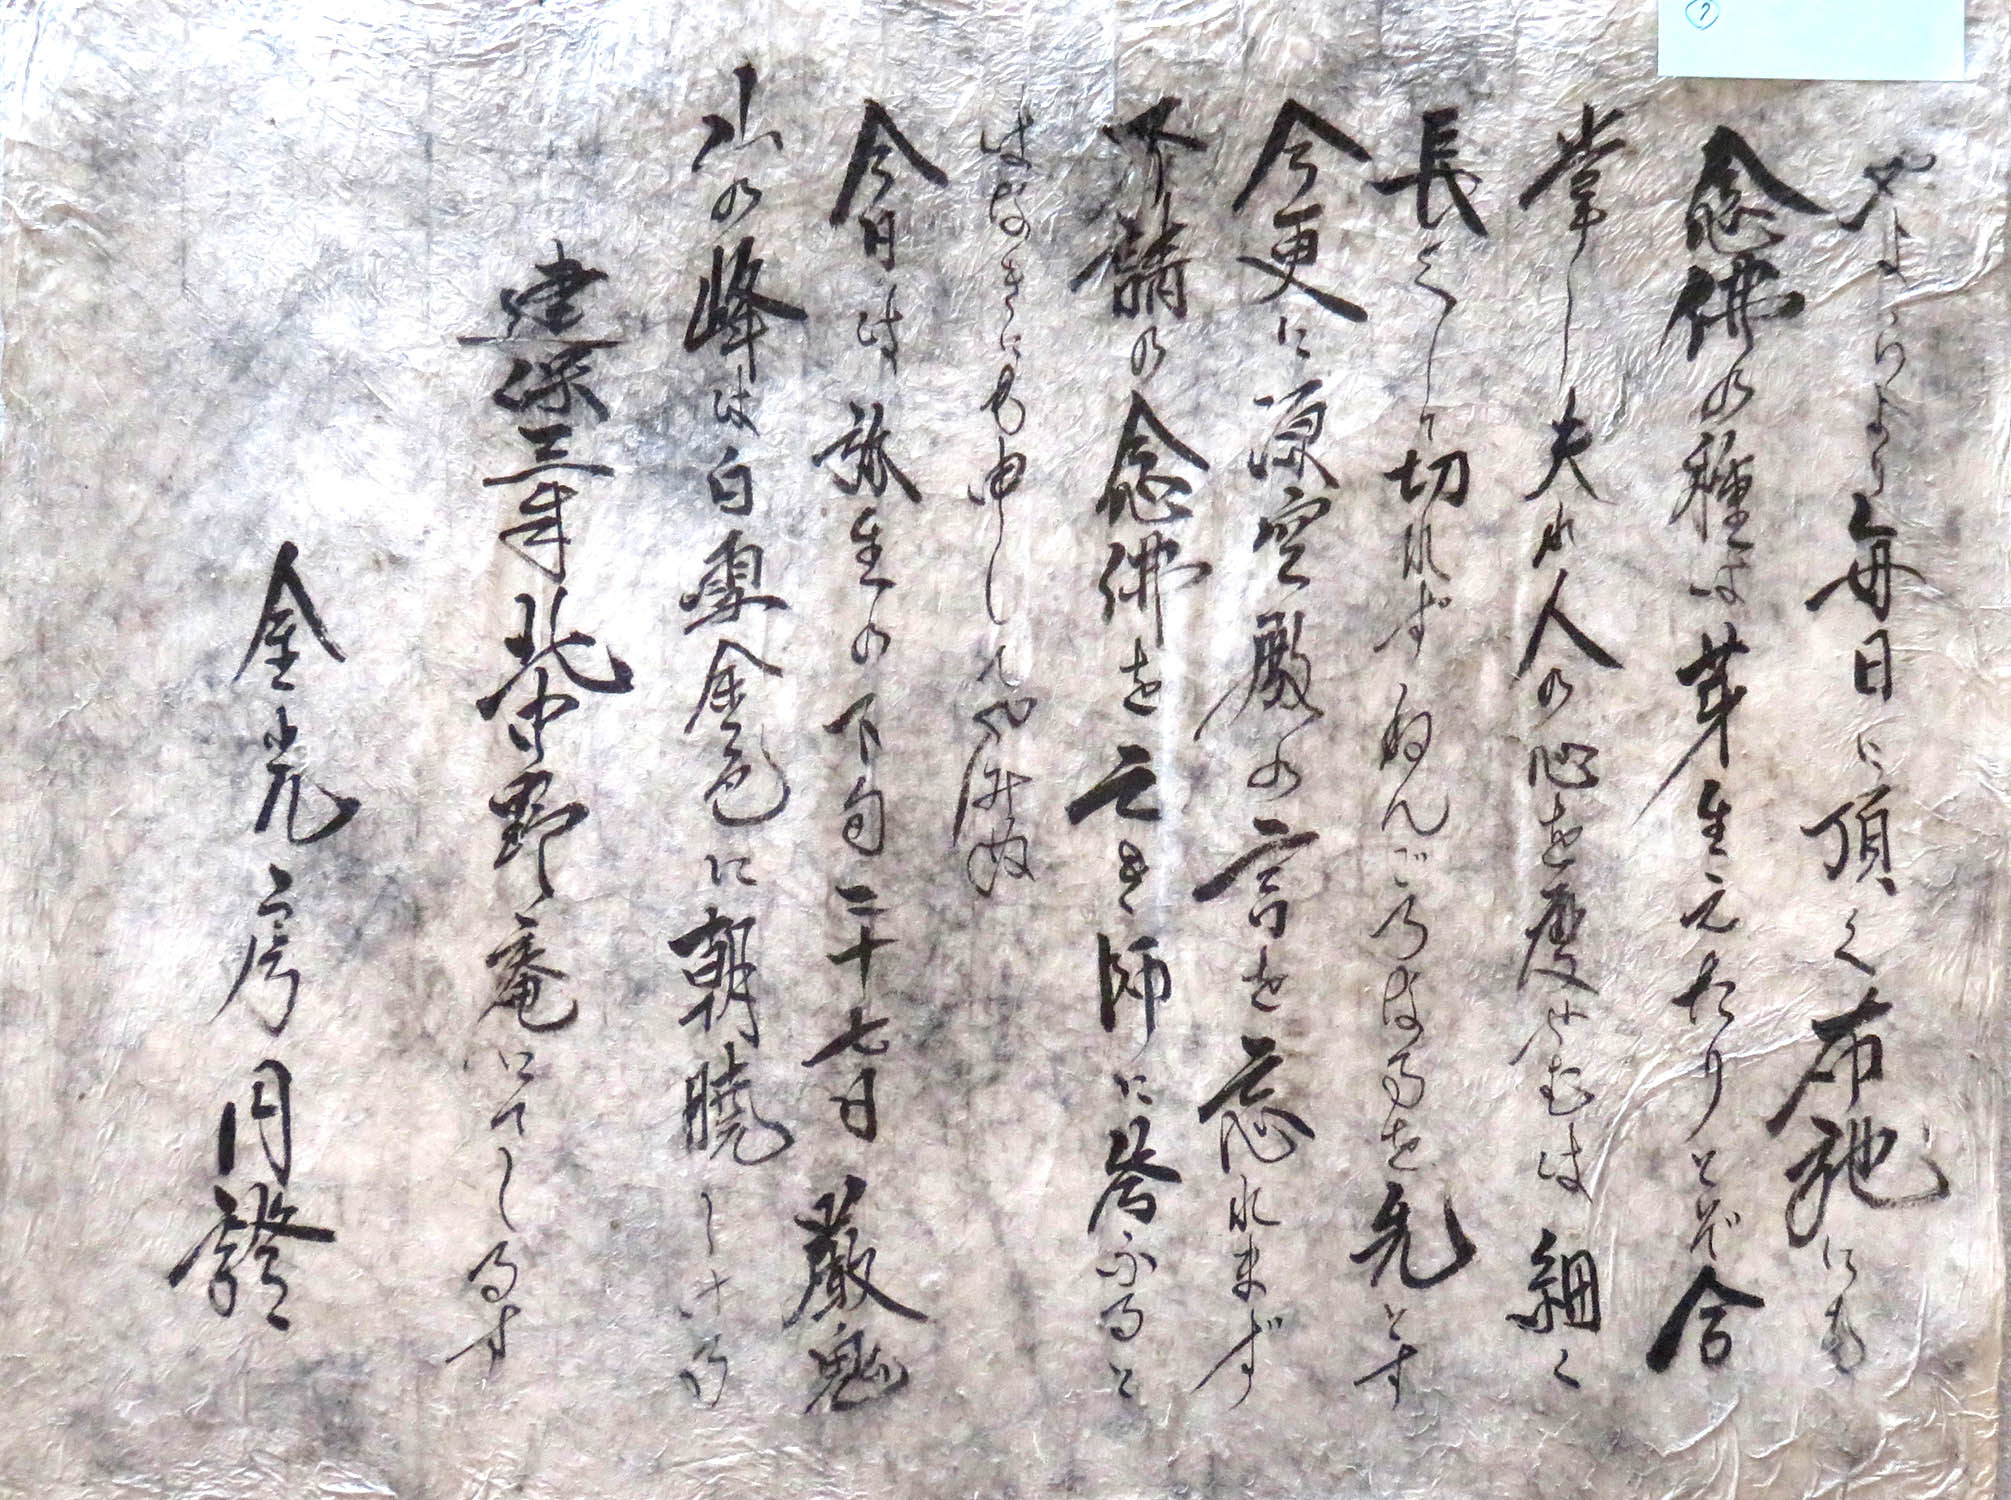 毎日に頂く布祂にも
念佛の種は芽生えたりとぞ合
掌し夫れ人の心を度せむは細く
長くして切れずねんごろなるを先とす
今更に源空殿の言を忘れまず
不請の念佛を之き師に答ふると
はなきにも申してやみぬ
今日は弥生の下旬二十七日巌鬼
山の峰は白雪金色に朝暁しける
建保三年 中野庵にてしるす
金光房円證
?